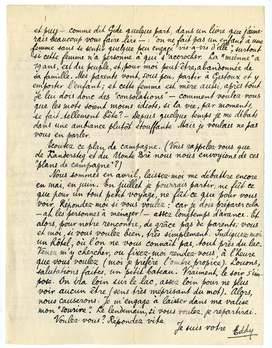 et puis – comme dit Gide quelque part, dans un livre que j'aime-
rais beaucoup vous faire lire – : "on ne fait pas un enfant à une
femme sans se sentir quelque peu engagé vis-à-vis d'elle", surtout
si cette femme n'a personne à qui s'accrocher. La "mienne" a
ans, est du peuple, et pour moi peut être, abandonnée de
sa famille. Mes parents vont, sous peu, partir à et y
emporter l'enfant; et cette femme est mère aussi, après tout.
Je lui dois donc des consolations. – Comment voulez vous
que les mots soient moins idiots, si la vie, par moments,
se fait tellement bête? – Depuis quelques temps je me débats
dans une ambiance plutôt étouffante. Mais je voulais ne pas
vous en parler.
Écoutez ce plan de campagne. (Vous rappelez vous que
de et du nous nous envoyions de ces
plans de campagne?)
Nous sommes en avril, laissez-moi me débattre encore
en mai, en juin. En juillet je pourrais partir, ne fût-ce
que pour un tout petit voyage, ne fût-ce que pour vous
voir. Répondez-moi si vous voulez: car je dois préparer cela
– ah les personnes à ménager! – assez longtemps d'avance. Et
alors, pour notre rencontre, de grâce pas de parents: vous
et moi, si vous voulez bien, très simplement. Indiquez-moi
un hôtel, où l'on ne vous connaît pas, tout près du lac.
Venez m'y chercher, ou fixez-moi rendez-vous à l'heure
que vous voulez (moi je préfère l'ombre propice). Louons,
salutations faites, un petit bateau. Vraiment, le soir s'im-
pose. On ira loin sur le lac, assez loin pour ne plus
voir aucun être (sens très représentant du mot). Alors,
nous causerons. Je m'engage à laisser dans ma valise
mon "sourire". Le lendemain, si vous voulez, je repartirai.
Voulez-vous? Répondez vite.
Je suis votre Eddy